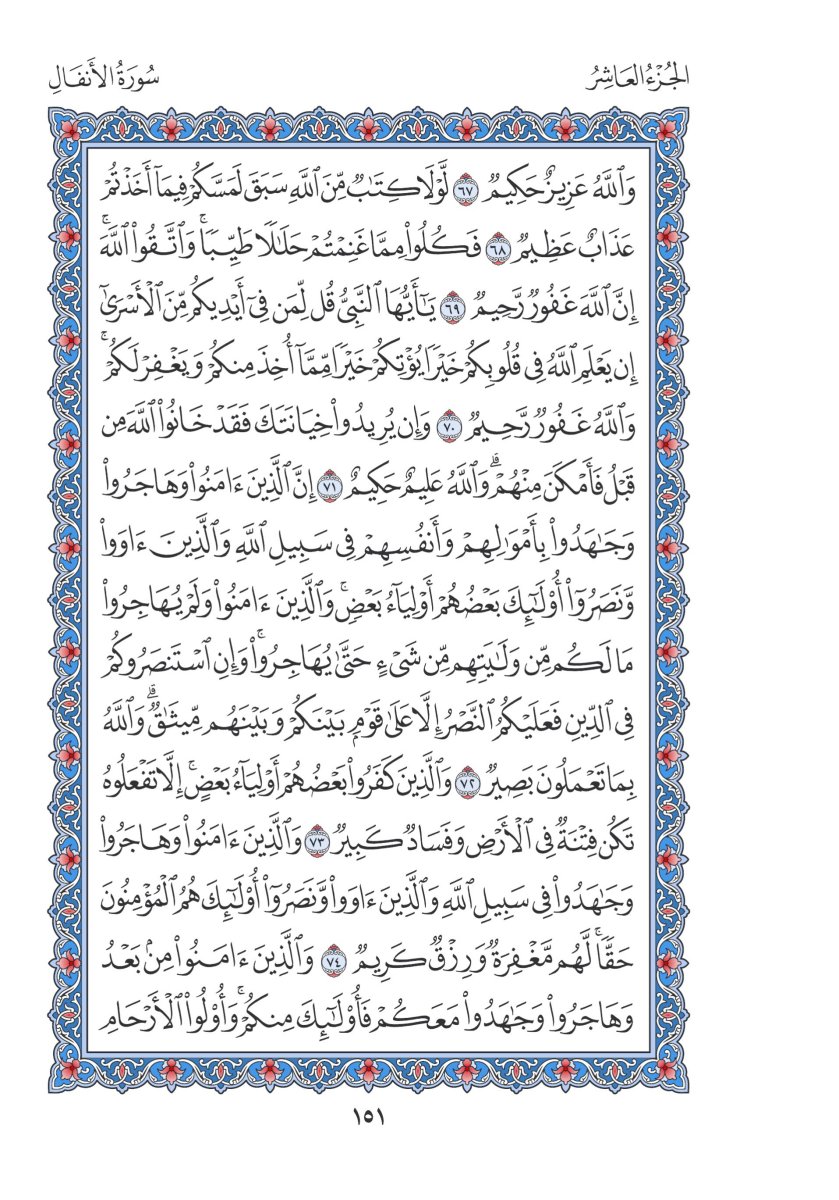 الجُزْءُ العَاشِرُ
سُورَةُ الأَنفَالِ
وَٱللَّهُ عَزِيزٌ حَكِيمٌ ٦٧ لَّوْلَا كِتَٰبٌ مِّنَ ٱللَّهِ سَبَقَ لَمَسَّكُمْ فِيمَآ أَخَذْتُمْ
عَذَابٌ عَظِيمٌ ٦٨ فَكُلُوا۟ مِمَّا غَنِمْتُمْ حَلَٰلًا طَيِّبًا ۚ وَٱتَّقُوا۟ ٱللَّهَ ۚ
إِنَّ ٱللَّهَ غَفُورٌ رَّحِيمٌ ٦٩ يَٰٓأَيُّهَا ٱلنَّبِىُّ قُل لِّمَن فِىٓ أَيْدِيكُم مِّنَ ٱلْأَسْرَىٰٓ
إِن يَعْلَمِ ٱللَّهُ فِى قُلُوبِكُمْ خَيْرًا يُؤْتِكُمْ خَيْرًا مِّمَّآ أُخِذَ مِنكُمْ وَيَغْفِرْ لَكُمْ ۚ
وَٱللَّهُ غَفُورٌ رَّحِيمٌ ٧٠ وَإِن يُرِيدُوا۟ خِيَانَتَكَ فَقَدْ خَانُوا۟ ٱللَّهَ مِن
قَبْلُ فَأَمْكَنَ مِنْهُمْ ۗ وَٱللَّهُ عَلِيمٌ حَكِيمٌ ٧١ إِنَّ ٱلَّذِينَ ءَامَنُوا۟ وَهَاجَرُوا۟
وَجَٰهَدُوا۟ بِأَمْوَٰلِهِمْ وَأَنفُسِهِمْ فِى سَبِيلِ ٱللَّهِ وَٱلَّذِينَ ءَاوَوا۟
وَّنَصَرُوٓا۟ أُو۟لَٰٓئِكَ بَعْضُهُمْ أَوْلِيَآءُ بَعْضٍ ۚ وَٱلَّذِينَ ءَامَنُوا۟ وَلَمْ يُهَاجِرُوا۟
مَا لَكُم مِّن وَلَٰيَتِهِم مِّن شَىْءٍ حَتَّىٰ يُهَاجِرُوا۟ ۚ وَإِنِ ٱسْتَنصَرُوكُمْ
فِى ٱلدِّينِ فَعَلَيْكُمُ ٱلنَّصْرُ إِلَّا عَلَىٰ قَوْمٍۭ بَيْنَكُمْ وَبَيْنَهُم مِّيثَٰقٌ ۗ وَٱللَّهُ
بِمَا تَعْمَلُونَ بَصِيرٌ ٧٢ وَٱلَّذِينَ كَفَرُوا۟ بَعْضُهُمْ أَوْلِيَآءُ بَعْضٍ ۚ إِلَّا تَفْعَلُوهُ
تَكُن فِتْنَةٌ فِى ٱلْأَرْضِ وَفَسَادٌ كَبِيرٌ ٧٣ وَٱلَّذِينَ ءَامَنُوا۟ وَهَاجَرُوا۟
وَجَٰهَدُوا۟ فِى سَبِيلِ ٱللَّهِ وَٱلَّذِينَ ءَاوَوا۟ وَّنَصَرُوٓا۟ أُو۟لَٰٓئِكَ هُمُ ٱلْمُؤْمِنُونَ
حَقًّا ۚ لَّهُم مَّغْفِرَةٌ وَرِزْقٌ كَرِيمٌ ٧٤ وَٱلَّذِينَ ءَامَنُوا۟ مِنۢ بَعْدُ
وَهَاجَرُوا۟ وَجَٰهَدُوا۟ مَعَكُمْ فَأُو۟لَٰٓئِكَ مِنكُمْ ۚ وَأُو۟لُوا۟ ٱلْأَرْحَامِ
١٥١